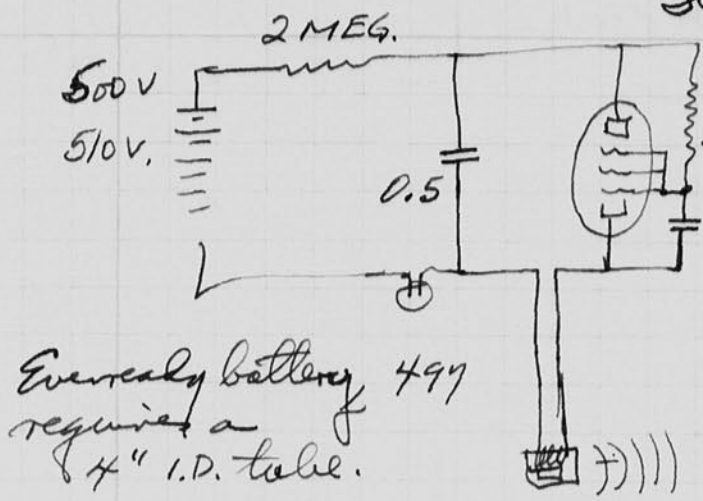 2 MEG.
500 V
510 V.
0.5
Eveready battery 497
requires a
4" I.D. tube.